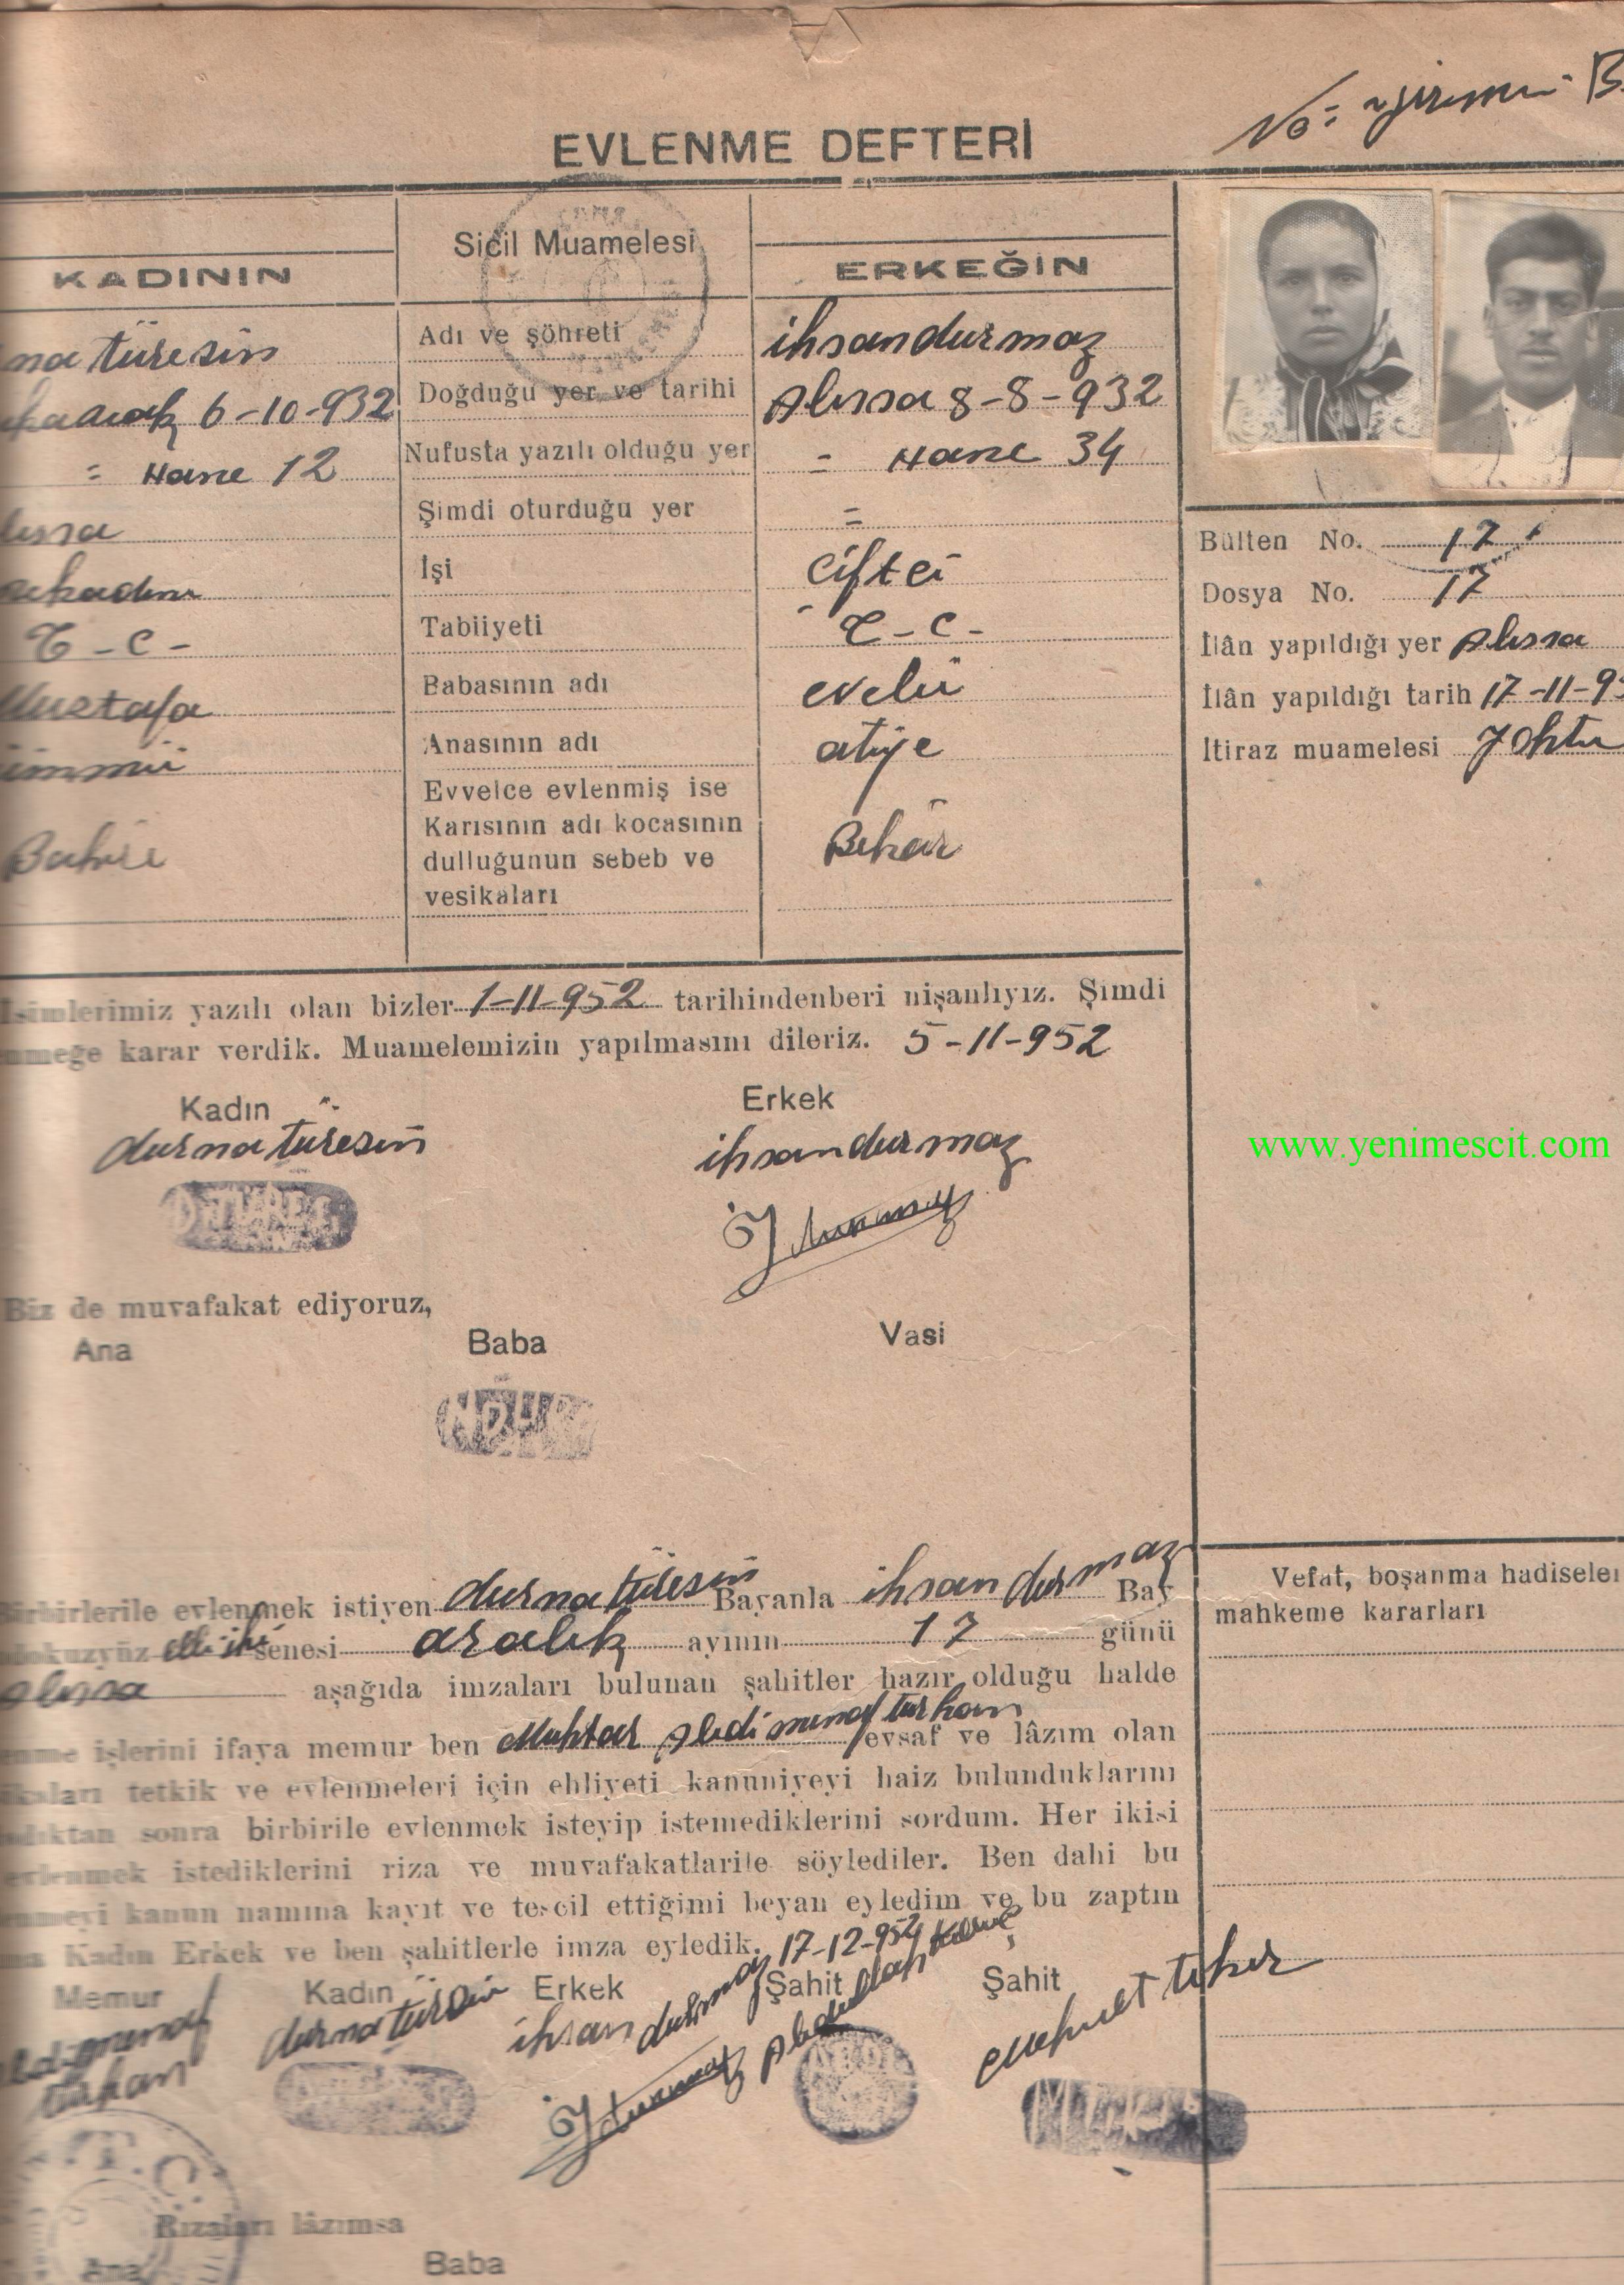 No: yirmi B
EVLENME DEFTERİ
KADININ
Sicil Muamelesi
ERKEĞİN
na türesin
Adı ve şöhreti
ihsan durmaz
6-10-932
Doğduğu yer ve tarihi
Alıssa 8-8-932
= Hane 12
Nufusta yazılı olduğu yer
= Hane 34
lıssa
Şimdi oturduğu yer
=
evkadını
İşi
Çiftci
T-C-
Tabiiyeti
T-C-
Mustafa
Babasının adı
evelü
ümmü
Anasının adı
atiye
Bakire
Evvelce evlenmiş ise
Karısının adı kocasının
dulluğunun sebeb ve
vesikaları
Bekâr
Bülten No. 17
Dosya No. 17
İlân yapıldığı yer Alıssa
İlân yapıldığı tarih 17-11-95
İtiraz muamelesi Yoktu
İsimlerimiz yazılı olan bizler 1-11-952 tarihindenberi nişanlıyız. Şimdi
nmeğe karar verdik. Muamelemizin yapılmasını dileriz. 5-11-952
Kadın
Erkek
durna türesin
ihsan durmaz
D.TÜRES
İ Durmaz
www.yenimescit.com
Biz de muvafakat ediyoruz,
Ana
Baba
Vasi
Birbirlerile evlenmek istiyen durna türesin Bayanla ihsan durmaz Bay
dokuzyüz elli iki senesi aralık ayının 17 günü
Alıssa aşağıda imzaları bulunan şahitler hazır olduğu halde
enme işlerini ifaya memur ben Muhtar Abdimunaf turhan evsaf ve lâzım olan
ikaları tetkik ve evlenmeleri için ehliyeti kanuniyeyi haiz bulunduklarını
adıktan sonra birbirile evlenmek isteyip istemediklerini sordum. Her ikisi
evlenmek istediklerini riza ve muvafakatlarile söylediler. Ben dahi bu
enmeyi kanun namına kayıt ve tescil ettiğimi beyan eyledim ve bu zaptın
na Kadın Erkek ve ben şahitlerle imza eyledik. 17-12-952
Memur
Kadın
Erkek
Şahit
Şahit
Abdimunaf
turhan
durna türesin
ihsan durmaz
İ Durmaz
Abdullah
Mehmet teker
T.C.
Rızaları lâzımsa
Ana
Baba
Vefat, boşanma hadiseler
mahkeme kararları